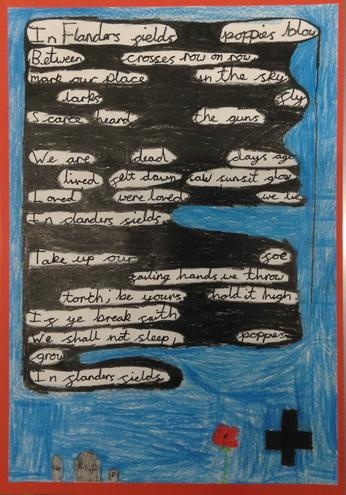 In Flanders fields poppies blow
Between crosses row on row
mark our place in the sky
larks fly
Scarce heard the guns
We are dead days ago
lived felt dawn saw sunset glow
Loved were loved we lie
In Flanders fields
Take up our foe
failing hands we throw
torch; be yours hold it high.
If ye break faith
We shall not sleep, poppies
grow
In flanders fields
R.I.P